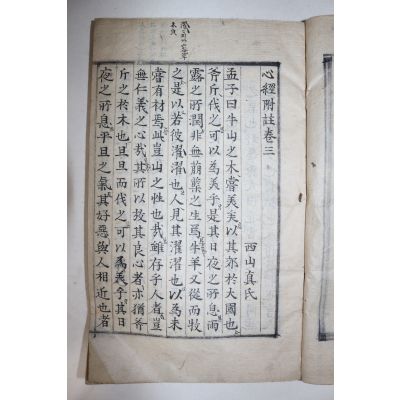 心經附註卷三
西山真氏
孟子曰牛山之木嘗美矣以其郊於大國也
斧斤伐之可以為美乎是其日夜之所息雨
露之所潤非無萌蘖之生焉牛羊又從而牧
之是以若彼濯濯也人見其濯濯也以為未
嘗有材焉此豈山之性也哉雖存乎人者豈
無仁義之心哉其所以放其良心者亦猶斧
斤之於木也旦旦而伐之可以為美乎其日
夜之所息平旦之氣其好惡與人相近也者